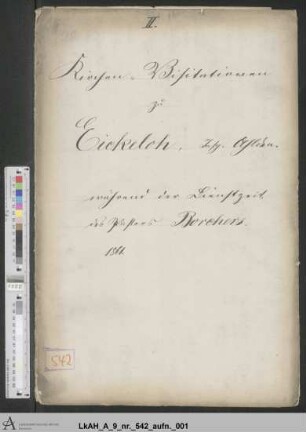 II.
Kirchen-Visitationen
zu
Eickeloh, Insp. Ahlden.
während der Dienstzeit
des Pastors Borchers.
542
LkAH_A_9_nr._542_aufn._001